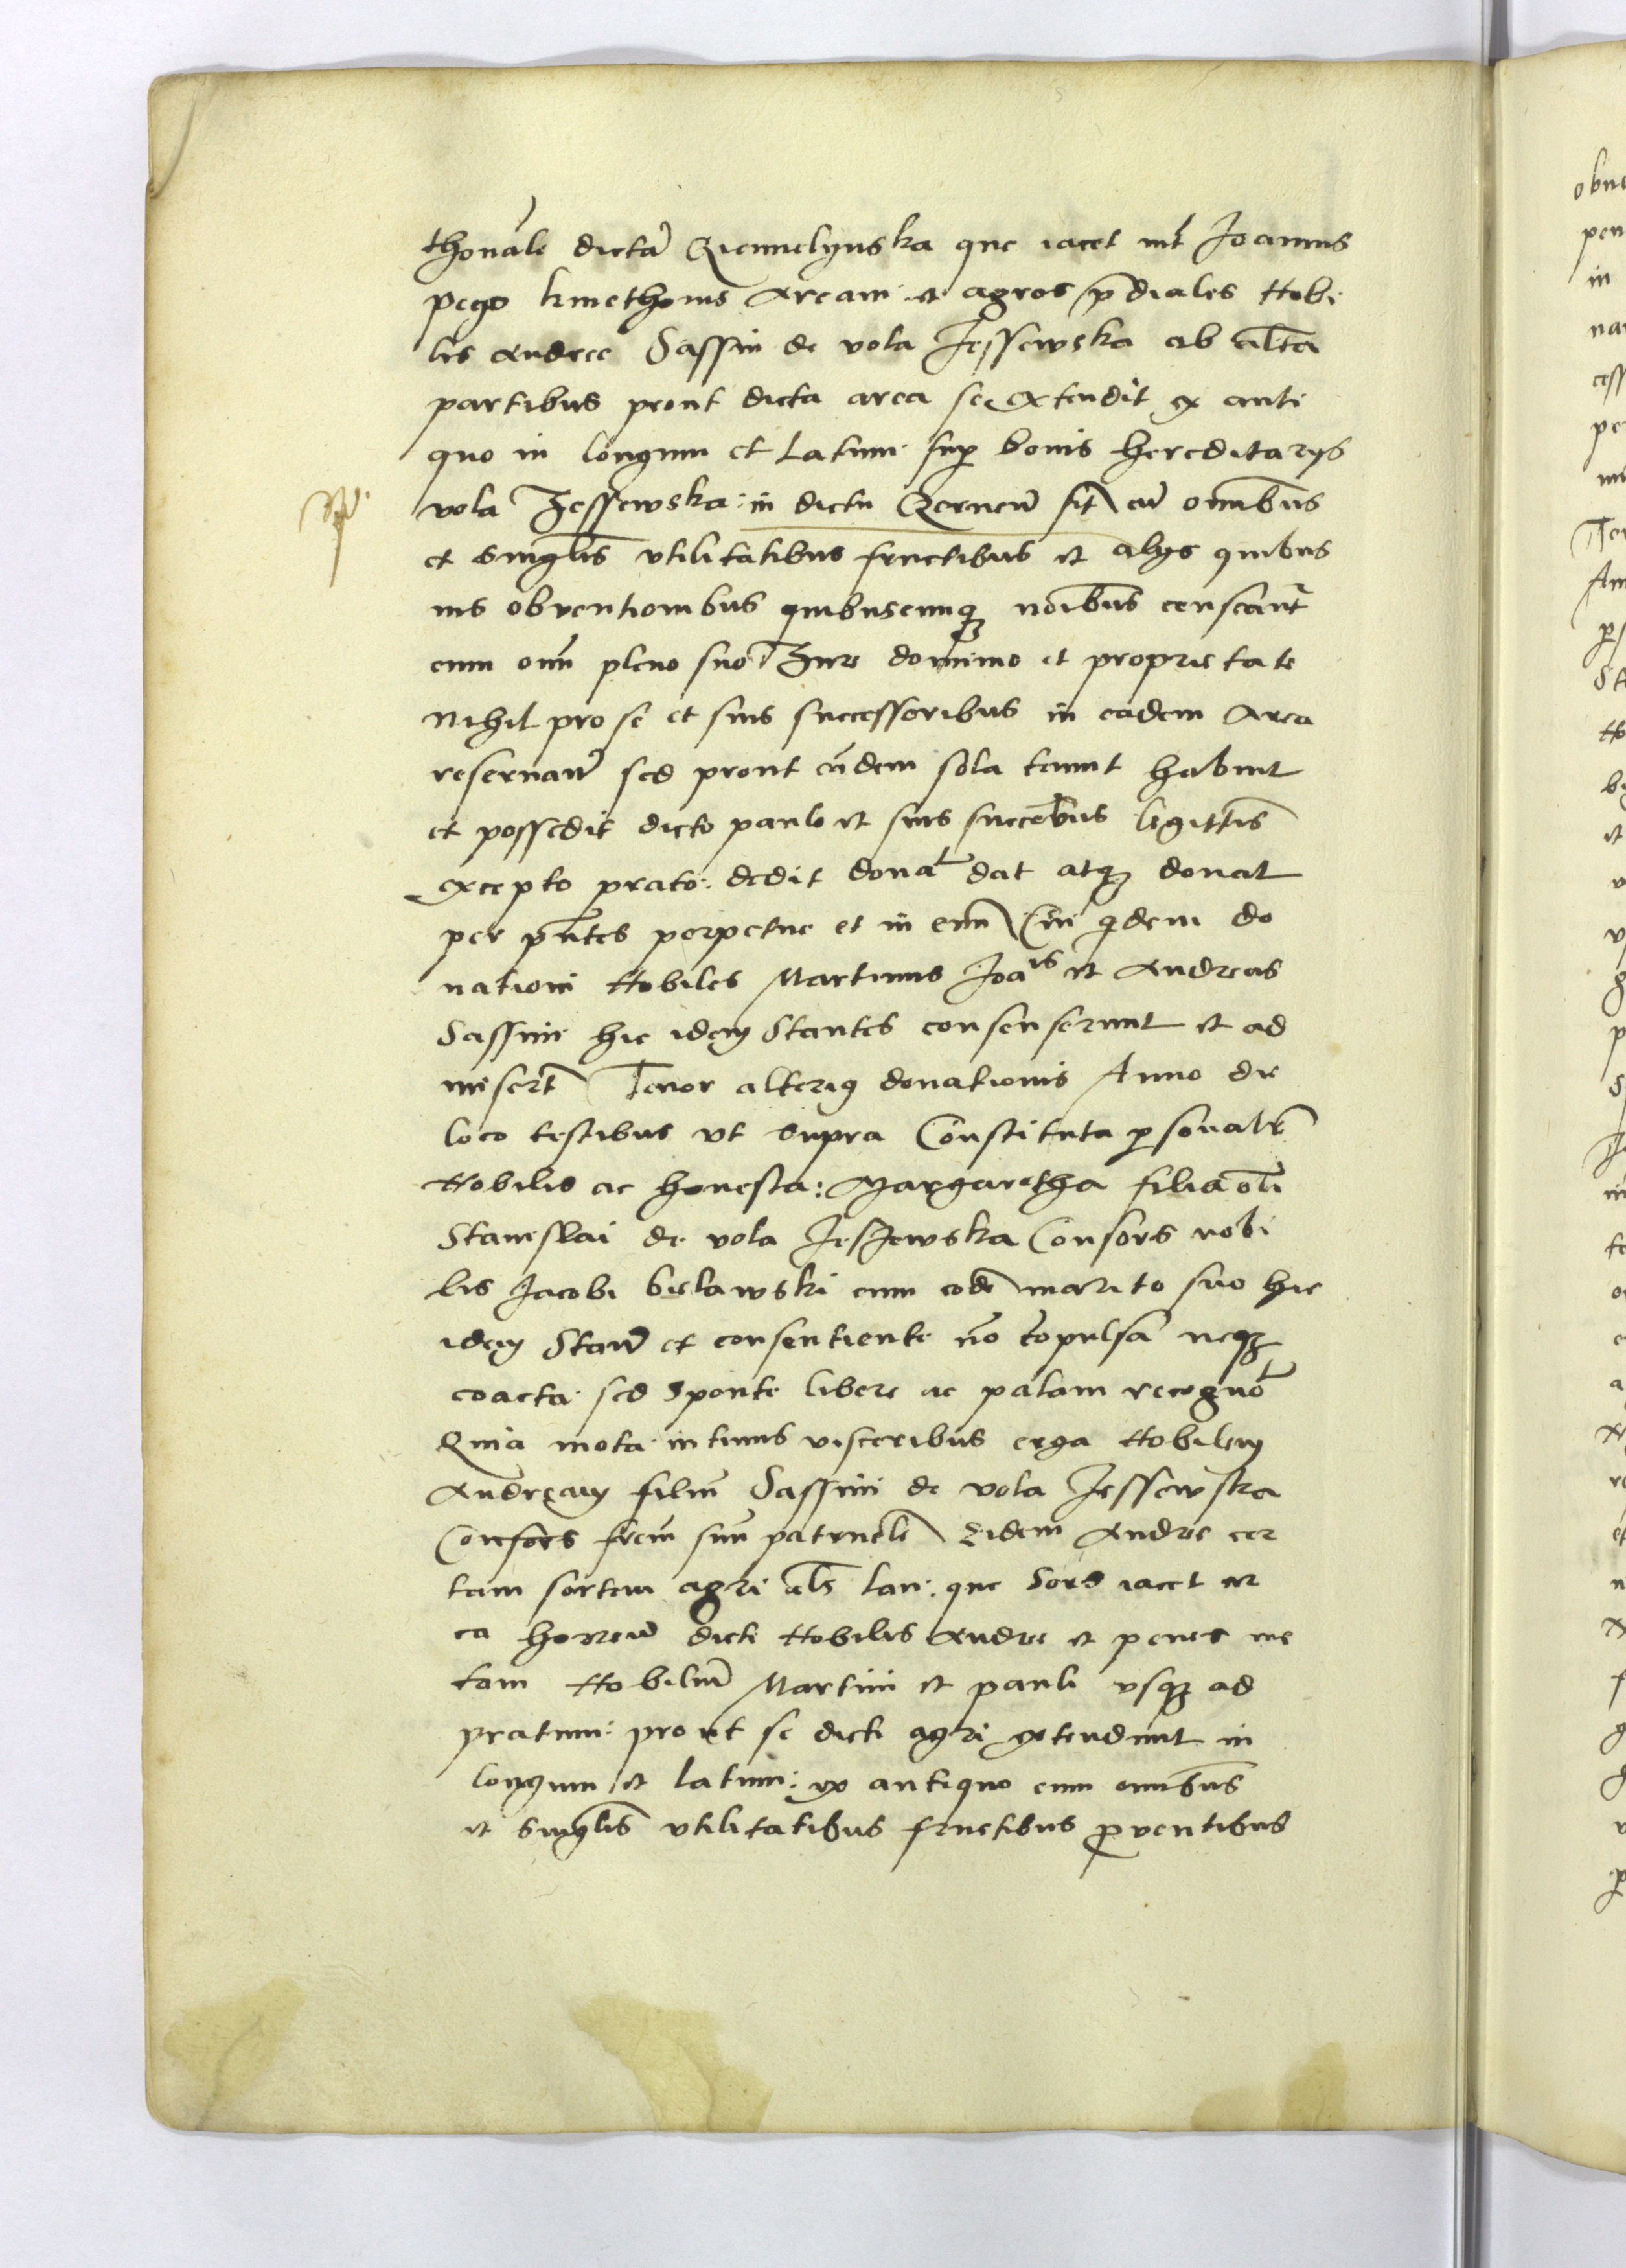 thonale dictā Quemelynska que iacet int Joannis
pego kmethonis aream et agros p̄diales Nobi
lis andree Sassin de vola Jessewska ab alt̄a
partibus prout dicta area se extendit ex anti
quo in longum et Latum sup bonis hereditarys
vola Jessewska in dictu sit cū omnibus
et singlis vtilitatibus fructibus et alys quibus
uis obventionibus quibuscunqꝫ noibus censeant̄
cum omī pleno suo Jure dominio et proprietate
Nihil pro se et suis successoribus in eadem area
reservan̄ sed prout eādem sola tenuit habuit
et possedit dicto paulo et suis succēbus legittīs
excepto prato dedit donat dat atqꝫ donat
per pn̄tes perpetue et in eum Cui qidem do
nationi Nobiles Martinus Joāis et Andreas
Sassini hic idem Stantes consenserunt et ad
miserūt Tenor alterius donationis Anno die
loco testibus vt supra Constituta psonalr̄
Nobilis ac honesta: Margaretha filia oli
Stanislai de vola Jessewska Consors nobi
lis Jacobi bielawski cum eodē marito suo hic
idem Stan̄ et consentiente nō cōpulsa neqꝫ
coacta sed sponte libere ac palam recognōt
Quia mota intimis visceribus erga Nobilem
Andream filiū Sassini de vola Jessewska
Consors frem̄ suū patruelē Eidem Andree cer
tam sortem agri als̄ lan: que Sors iacet cir
ca horreū dicti Nobilis Andree et penes me
tam Nobiliū Martini et pauli vsqꝫ ad
pratum: prout se dicti agri extendunt in
longum et latum: ex antiquo cum omnibus
et singlis vtilitatibus fructibus pventibus